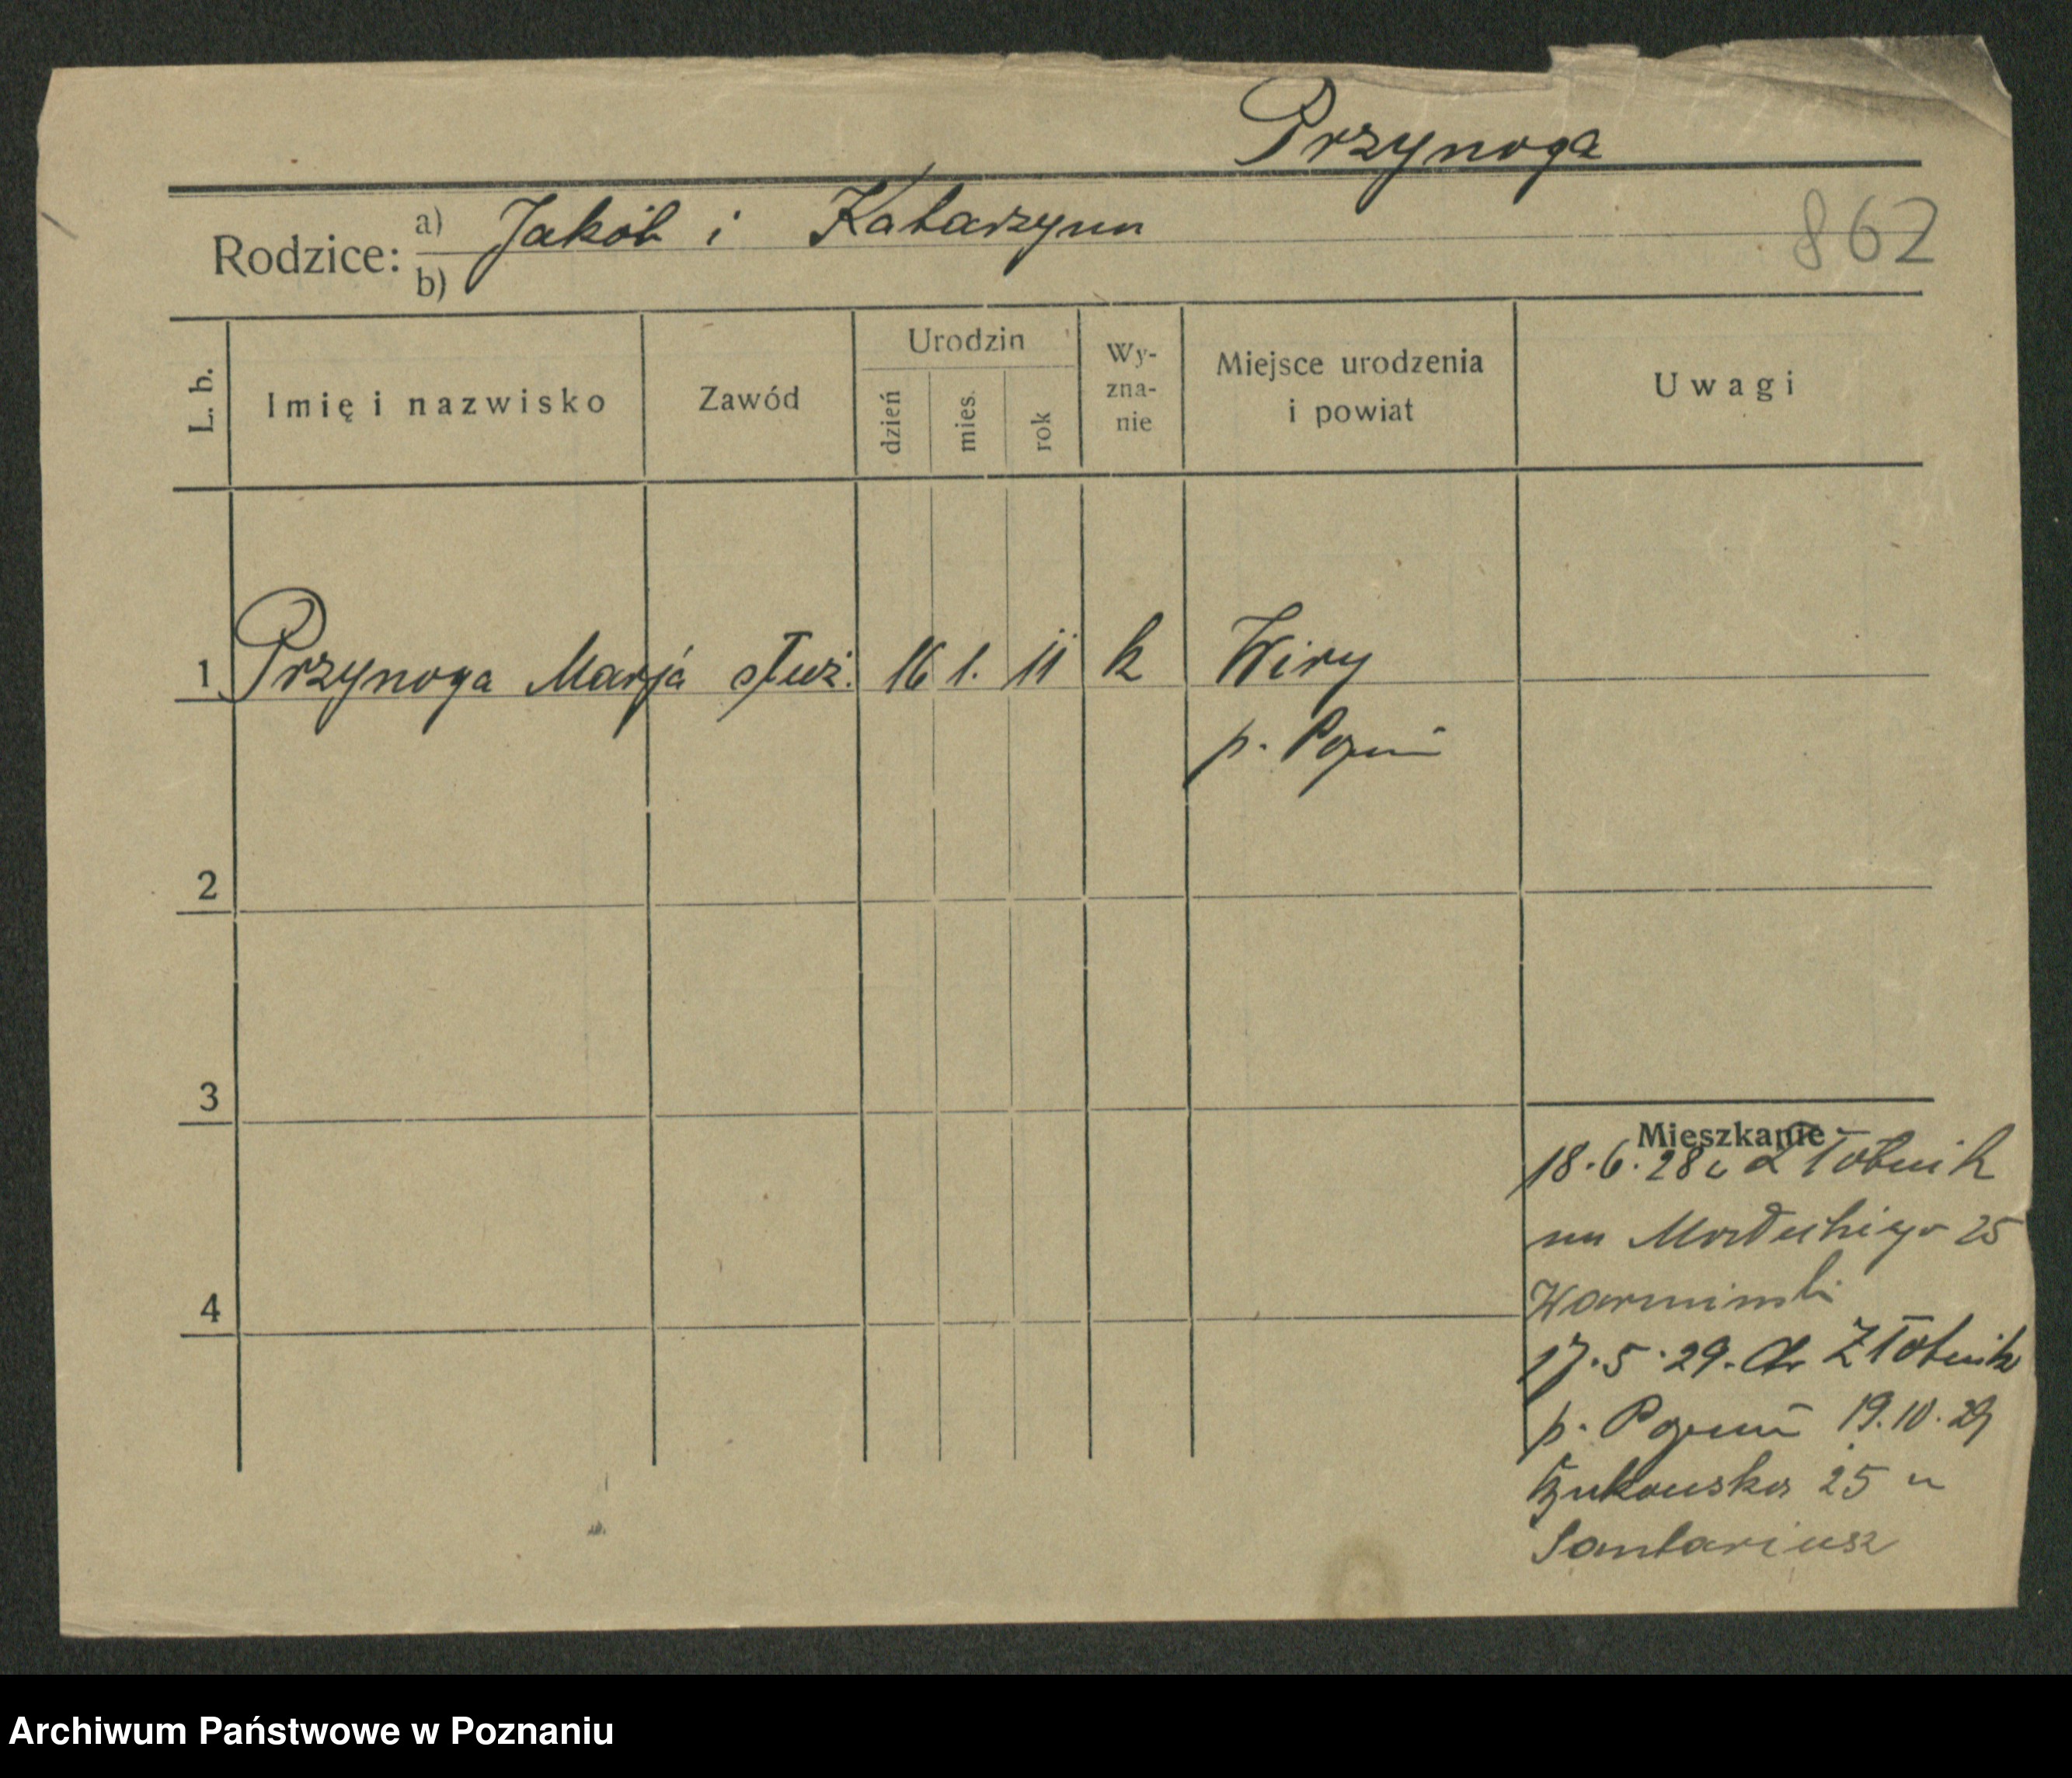 Przynoga
862
Rodzice: a) Jakób i Katarzyna
b)
L. b. Imię i nazwisko Zawód Urodzin dzień mies. rok Wy-zna-nie Miejsce urodzenia i powiat Uwagi
1 Przynoga Marja służ. 16 1. 11 k Wiry
p. Poznń
2
3
Mieszkanie
18.6.28 z Złotnik
na
25
4
Warmiński
17.5.29. do Złotnik
p. Poznń 19.10.29
Bukowska 25 u
Santariusz
Archiwum Państwowe w Poznaniu